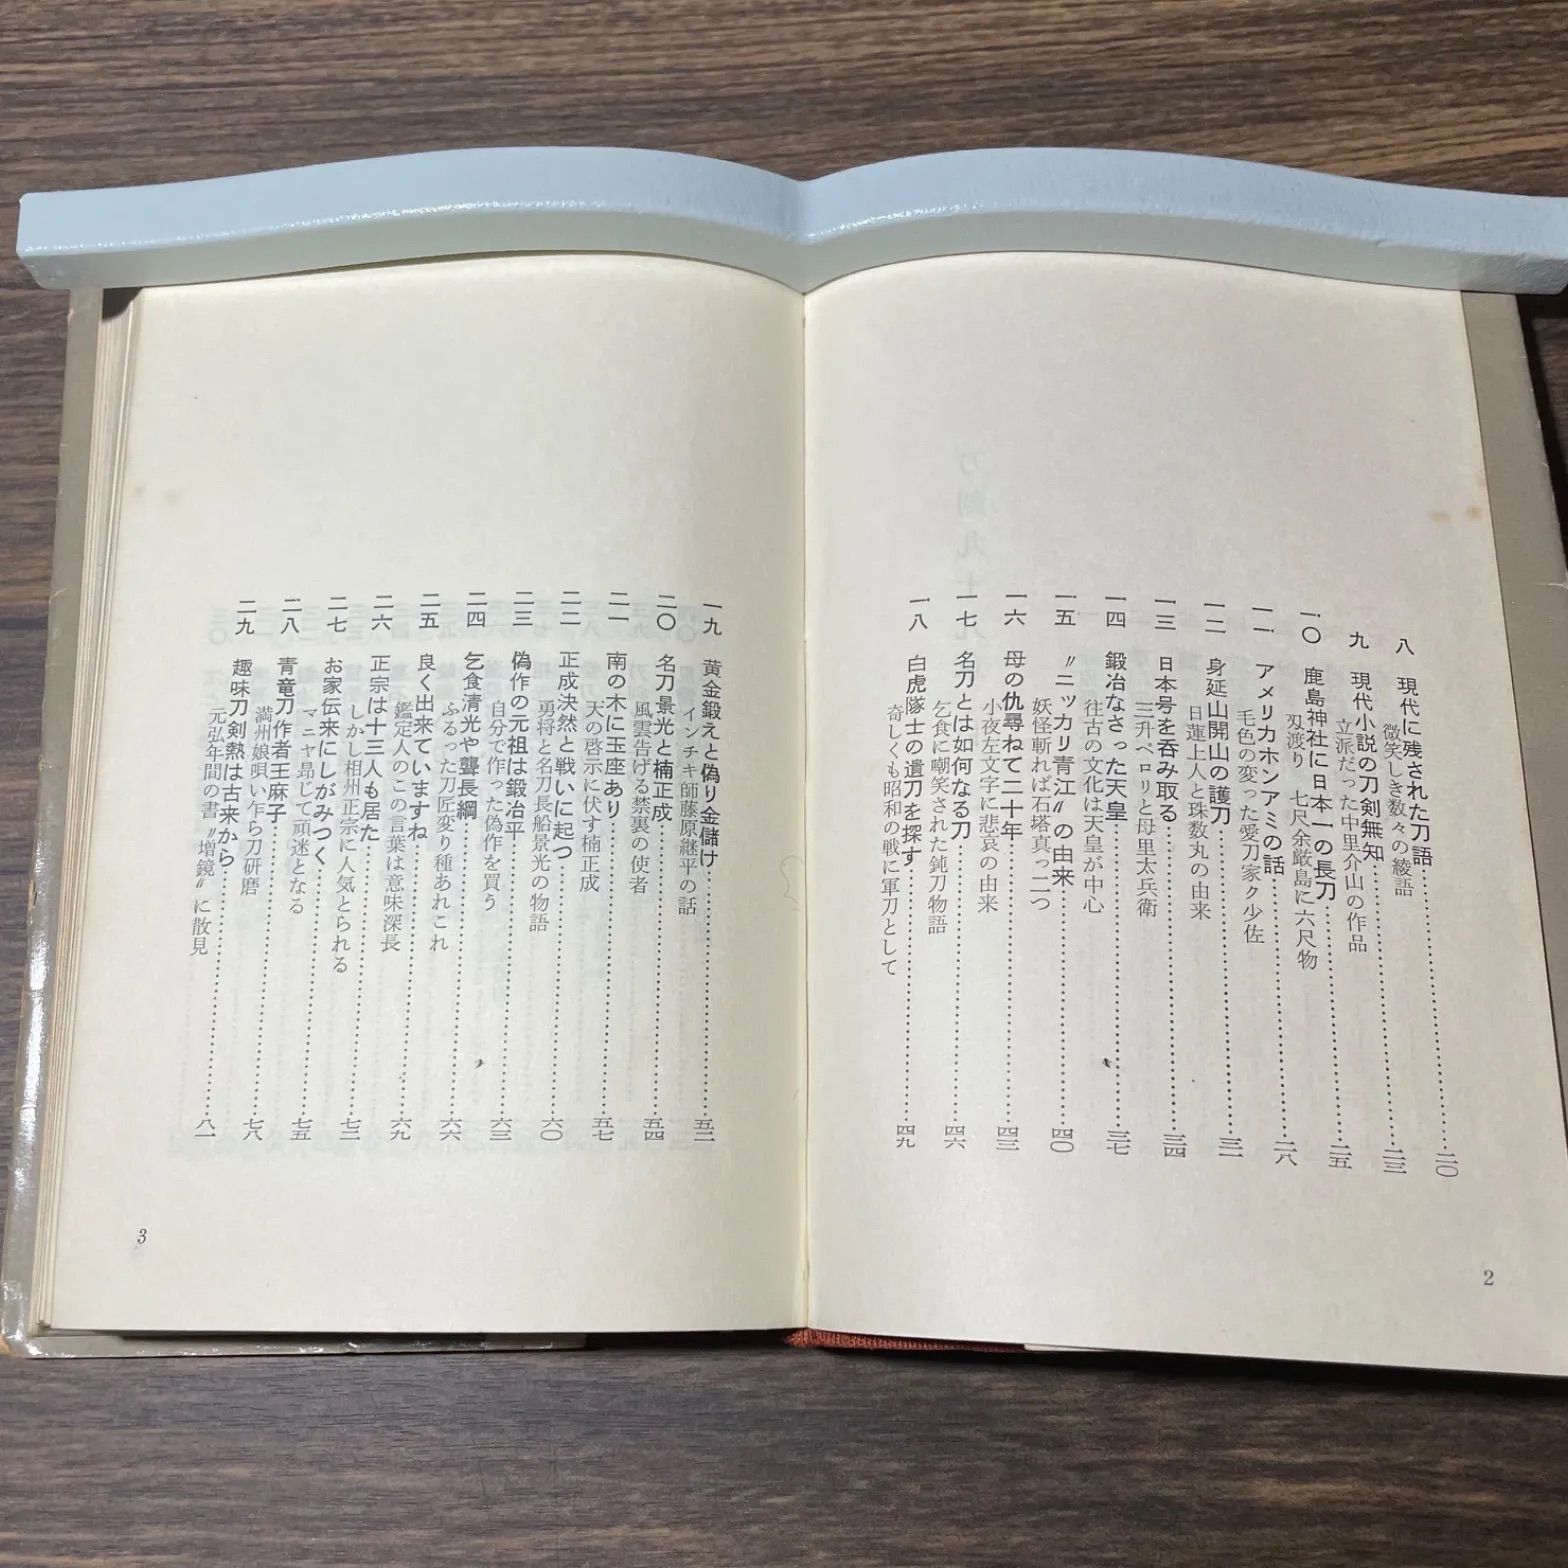 八　現代に残された刀語……二〇
微笑しき数々の綾語
九　現代小説の刀剣無知……二三
立派だった中里介山の作品
一〇　鹿島神社に日本一の長刀……二五
刃渡り　七尺余厳島に六尺物
一一　アメリカホンアミの話……二八
毛色の変った愛刀家ク少佐
一二　身延山開山の護刀……三一
日蓮上人と珠数丸の由来
一三　日本号を呑み取る……三四
三升ペロリと母里太兵衛
一四　鍛冶なさった天皇……三七
往古の文化は天皇が中心
一五　〝ニッカリ青江〟の由来……四〇
妖怪斬れば石塔真っ二つ
一六　母の仇尋ねて二十年……四三
小夜左文字に悲哀の由来
一七　名刀とは如何なる刀……四六
乞食に嘲笑された鈍刀物語
一八　白虎隊士の遺刀を探す……四九
奇しくも昭和の戦に軍刀として
2
一九　黄金鍛えと偽り金儲け……五二
インチキ師藤原継平の話
二〇　名刀景光と楠正成……五四
風雲告げる禁裏の使者
二一　南の木に玉座あり……五七
天の啓示に伏す楠正成
二二　正成決然と戦いに起つ……六〇
勇将と名刀長船景光の物語
二三　偽作の元祖は鍛冶平……六三
自分で作った偽作を買う
二四　乞食清光や聾長綱……六六
ふるった刀匠変り種あれこれ
二五　良く出来ていますね……六九
鑑定人のこの言葉は意味深長
二六　正宗は十三人も居た……七二
しかし相州正宗に人気とられる
二七　お家伝来にしがみつく……七五
マニヤ昂じて頑迷となる
二八　青竜刀作者王麻子……七八
満州娘唄い作ら刀研磨
二九　趣味刀剣熱は古来から……八一
元弘年間の書〝増鏡〟に散見
3